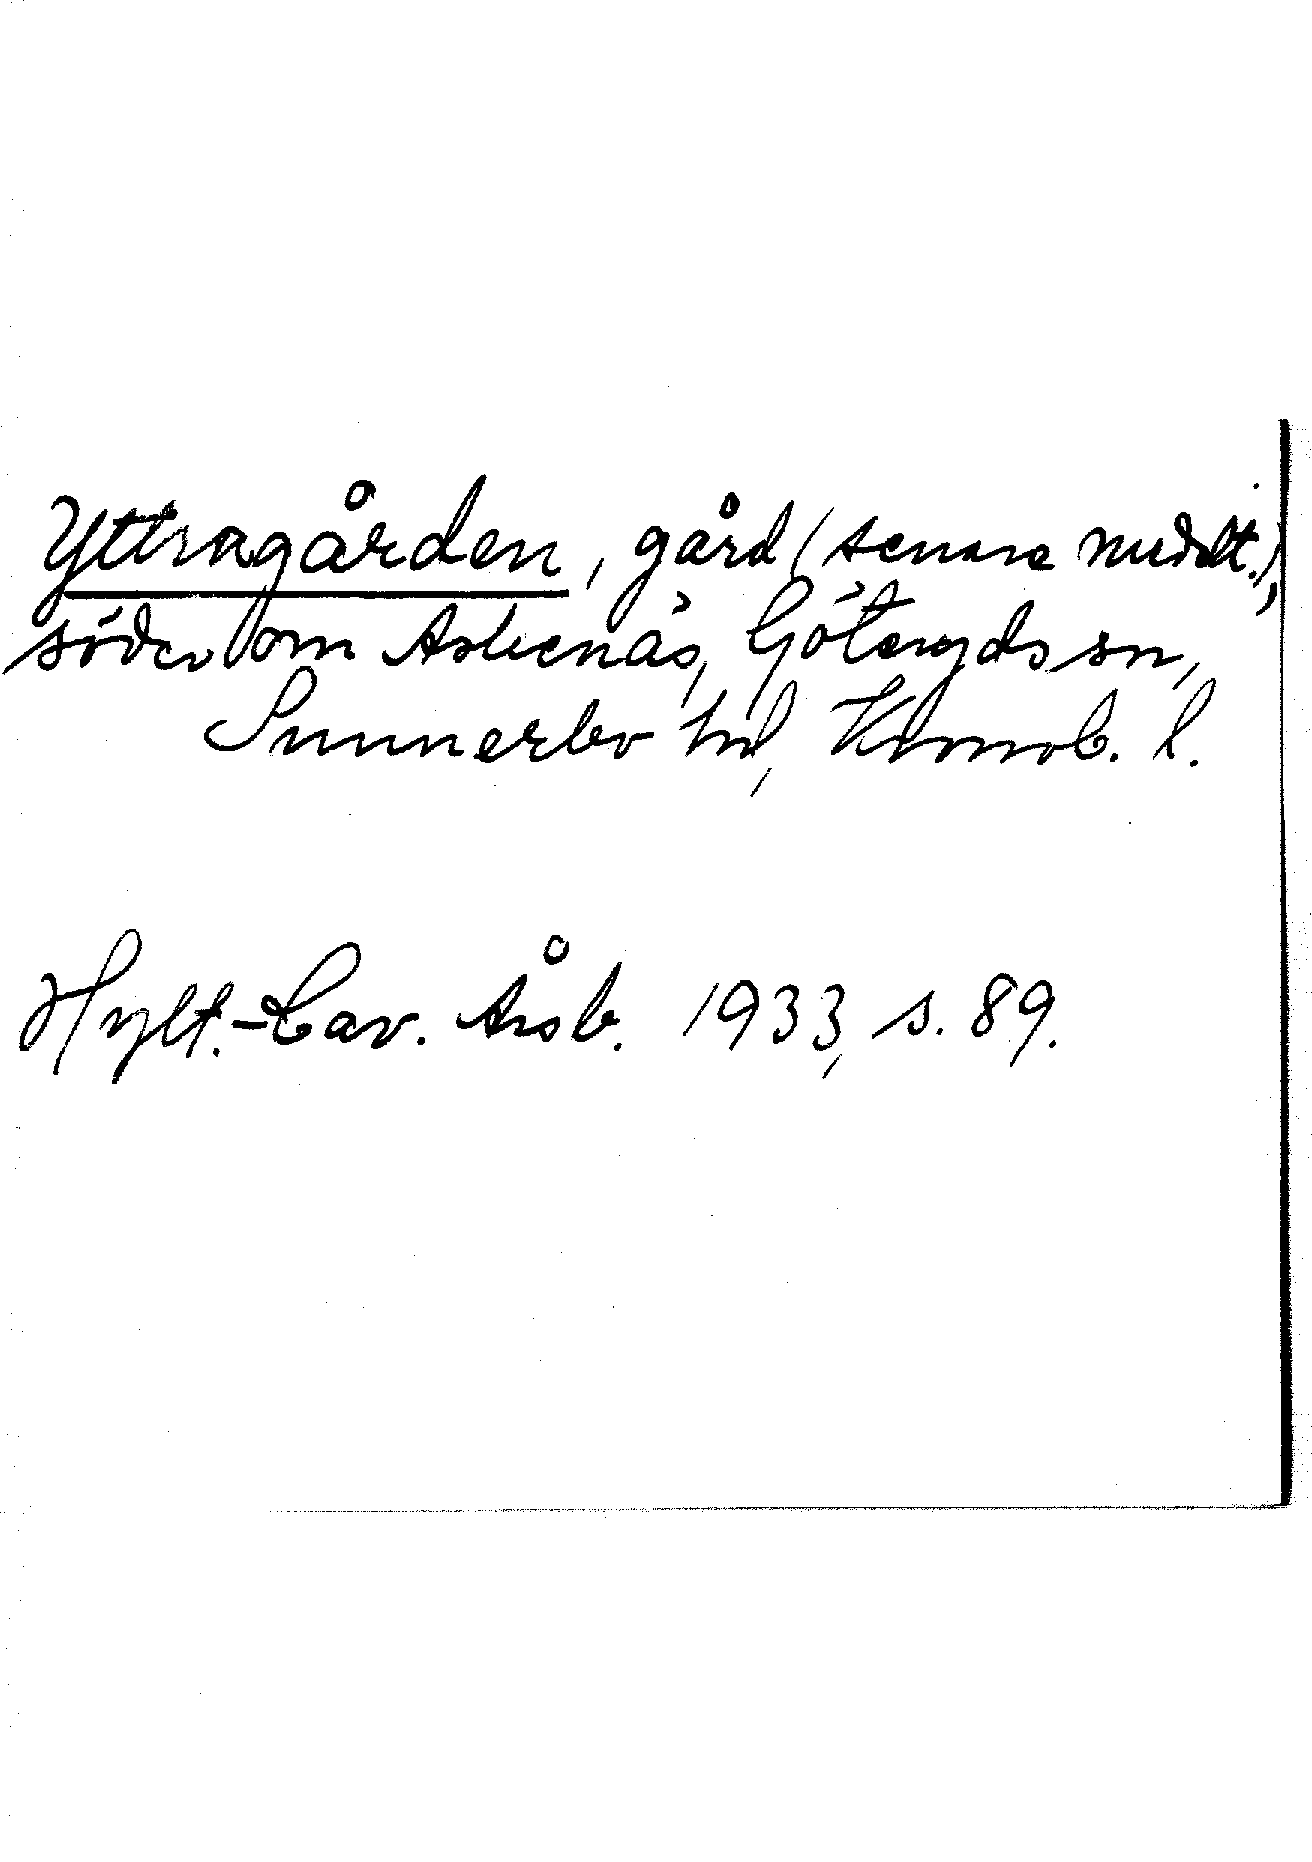 Yttragården, gård (senare medelt.),
söder om Askenäs, Göteryds sn,
Sunnerbo hd, Kronob. l.
Hylt.-Cav. Årsb. 1933, s. 89.